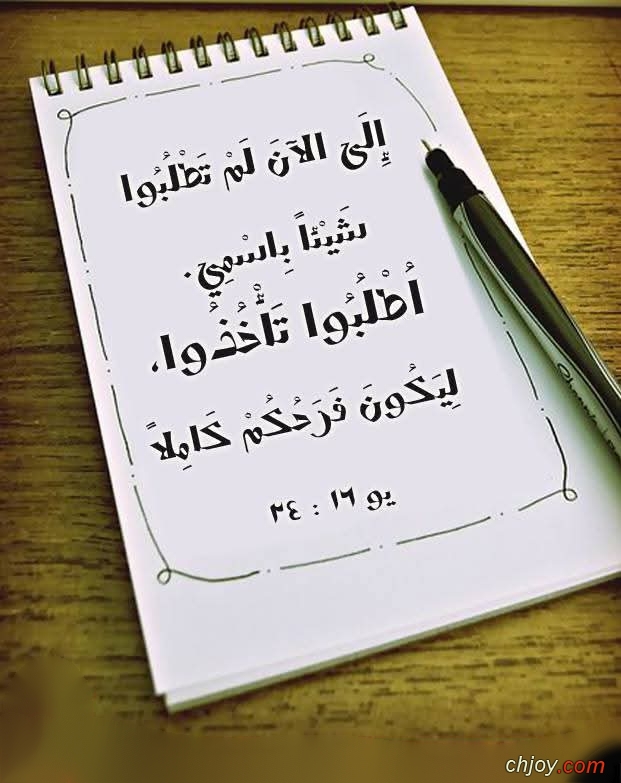 إِلَى الآنَ لَمْ تَطْلُبُوا
شَيْئاً بِاسْمِي.
اُطْلُبُوا تَأْخُذُوا،
لِيَكُونَ فَرَحُكُمْ كَامِلاً
يو ١٦ : ٢٤
chjoy.com